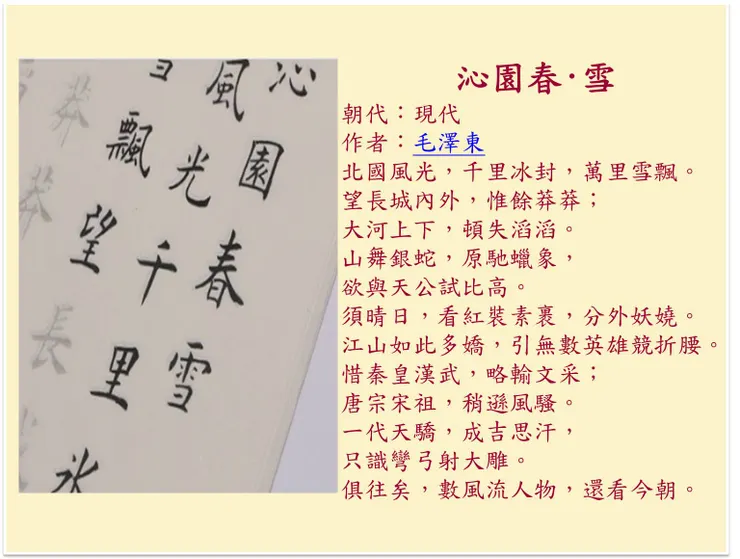 沁園春·雪
朝代：現代
作者：毛澤東
北國風光，千里冰封，萬里雪飄。
望長城內外，惟餘莽莽；
大河上下，頓失滔滔。
山舞銀蛇，原馳蠟象，
欲與天公試比高。
須晴日，看紅裝素裹，分外妖嬈。
江山如此多嬌，引無數英雄競折腰。
惜秦皇漢武，略輸文采；
唐宗宋祖，稍遜風騷。
一代天驕，成吉思汗，
只識彎弓射大雕。
俱往矣，數風流人物，還看今朝。
沁園春雪
風光千里冰
雪飄望
長
莽莽